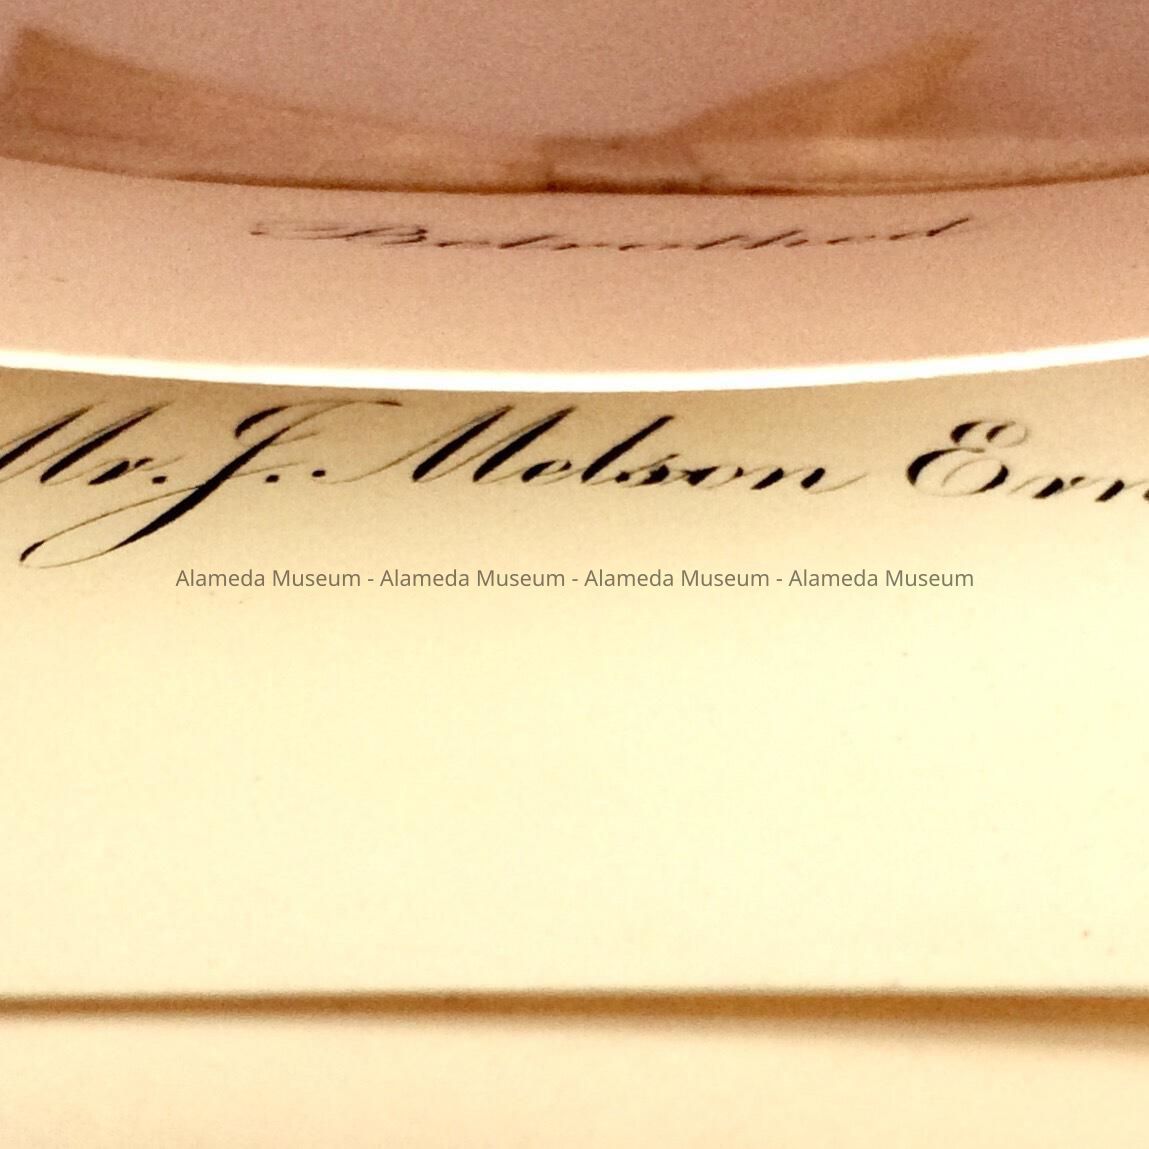 Betrothed
Mr. J. Melson Ern
Alameda Museum - Alameda Museum - Alameda Museum - Alameda Museum